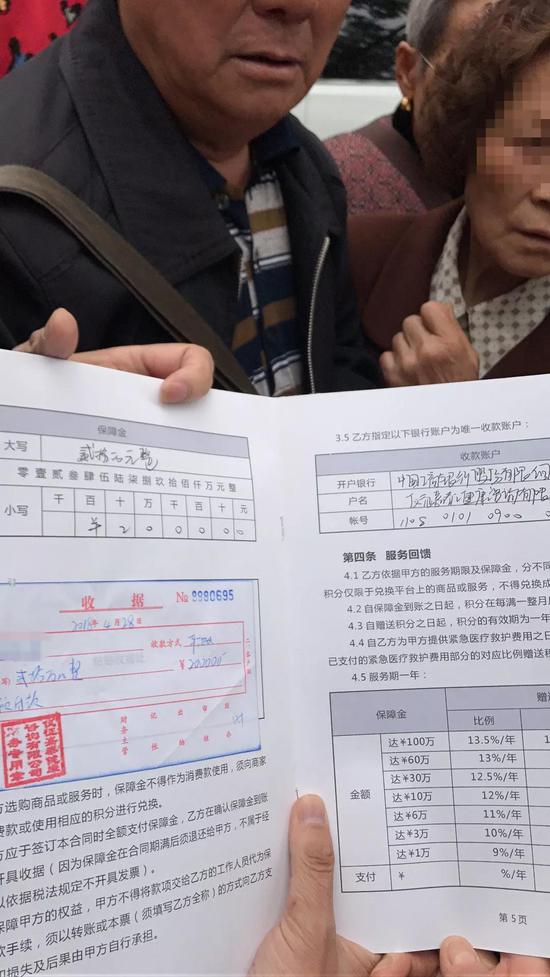 保障金
大写 贰拾万元整
零壹贰叁肆伍陆柒捌玖拾佰仟万元整
小写
千 百 十 万 千 百 十 元
¥ 2 0 0 0 0 0
收 据
№ 8980695
4月28日
收款方式
贰拾万元整
¥ 200000
财务主管 记帐 出纳 审核 经办
方选购商品或服务时，保障金不得作为消费款使用，须向商家
费款或使用相应的积分进行兑换。
方应于签订本合同时全额支付保障金，乙方在确认保障金到账
开具收据（因为保障金在合同期满后须退还给甲方，不属于经
以依据税法规定不开具发票）。
保障甲方的权益，甲方不得将款项交给乙方的工作人员代为保
款手续，须以转账或本票（须填写乙方全称）的方式向乙方支
损失及后果由甲方自行承担。
3.5 乙方指定以下银行账户为唯一收款账户：
收款账户
开户银行 中国工商银行股份有限
户名
帐号 1105 0101 0900 0
第四条 服务回馈
4.1 乙方依据甲方的服务期限及保障金，分不同
积分仅限于兑换平台上的商品或服务，不得兑换成
4.2 自保障金到账之日起，积分在每满一整月
4.3 自赠送积分之日起，积分的有效期为一年
4.4 自乙方为甲方提供紧急医疗救护费用之日
已支付的紧急医疗救护费用部分的对应比例赠送积
4.5 服务期一年：
保障金 赠
比例
金额
达¥100万 13.5%/年
达¥60万 13%/年
达¥30万 12.5%/年
达¥10万 12%/年
达¥6万 11%/年
达¥3万 10%/年
达¥1万 9%/年
支付 ¥ %/年
第 5 页